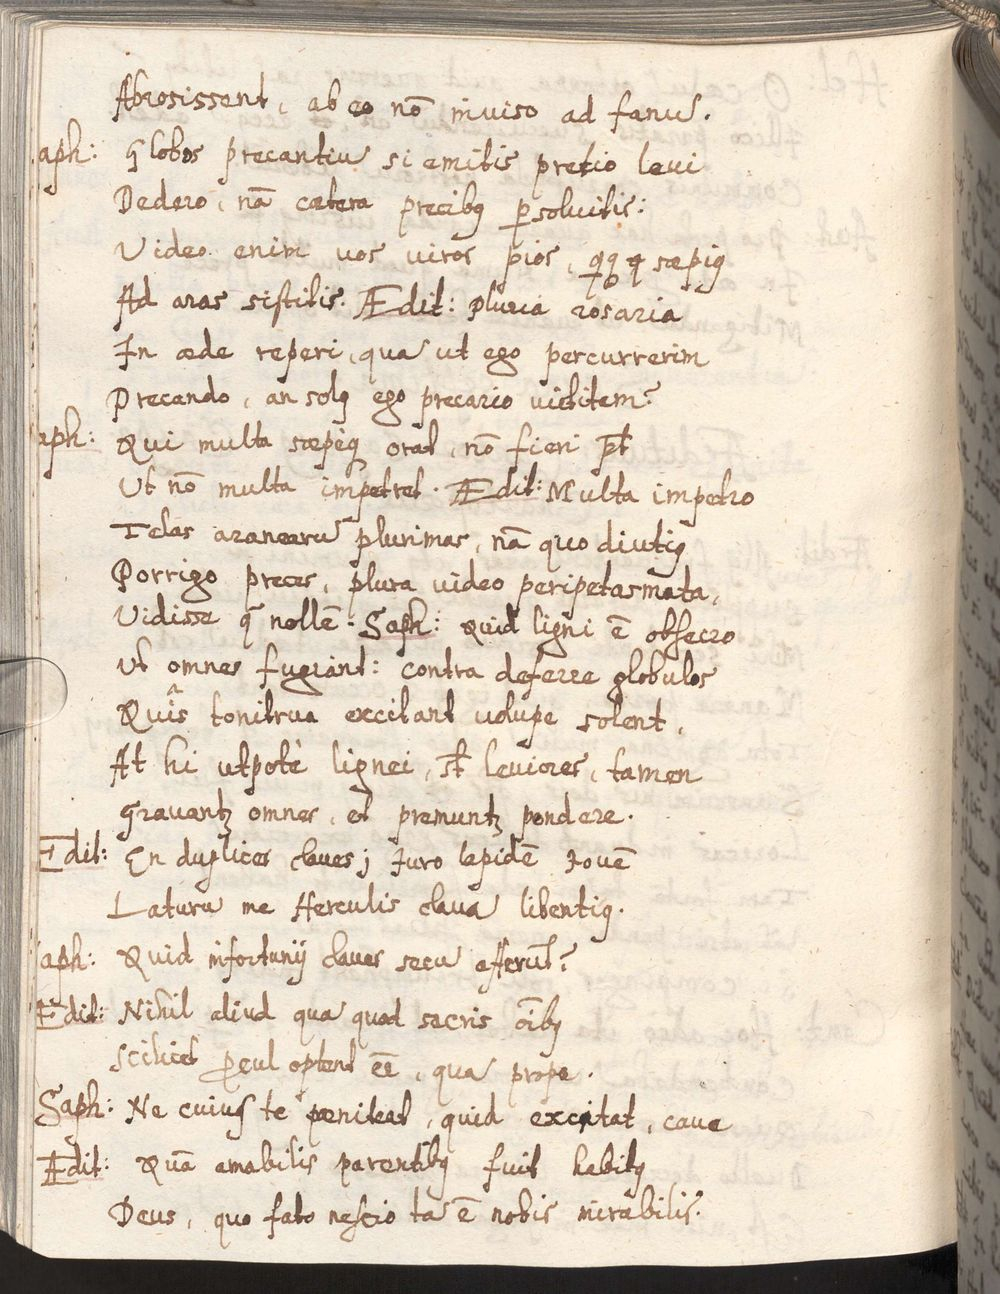 Abrosissent, ab eo nō inviso ad fanū.
aph: globos precantiū si emitis pretio levi
Dedero, nā cætera precibꝰ ꝑsolvitis:
Video enim vos viros pios, sæpiꝰ
Ad aras sistitis. Ædit: pluria rosaria
In æde reperi, quā ut ego percurrerim
Precando, an solꝰ ego precario victitem?
aph: Qui multa sæpeq orat, nō fieri pt̄
Ut nō multa impetret. Ædit: Multa impetro
Telas aranearū plurimas, nā quo diutiꝰ
Porrigo preces, plura video peripetasmata,
Vidisse q̄ nollē. Saph: Quid ligni ē obsecro
Ut omnes fugiant: contra deferre globulos
Quīs tonitrua excitant volupe solent,
At hi utpote lignei, st̄ leviores, tamen
gravantꝫ omnes, et premuntꝫ pondere.
Edit: En duplices claves; Iuro lapidē Iovē
Laturū me Herculis clavā libentiꝰ.
aph: Quid infortunij claves secū afferūt?
Ædit: Nihil aliud quā quod sacris oībꝰ
Scilicet ꝓcul optent eē, quā prope.
Saph: Ne cuiuſ te pœniteat, quid excitat, cave
Ædit: Quā amabilis parentibꝰ fuit habitꝰ
Deus, quo fato nescio tā ē nobis mirabilis.